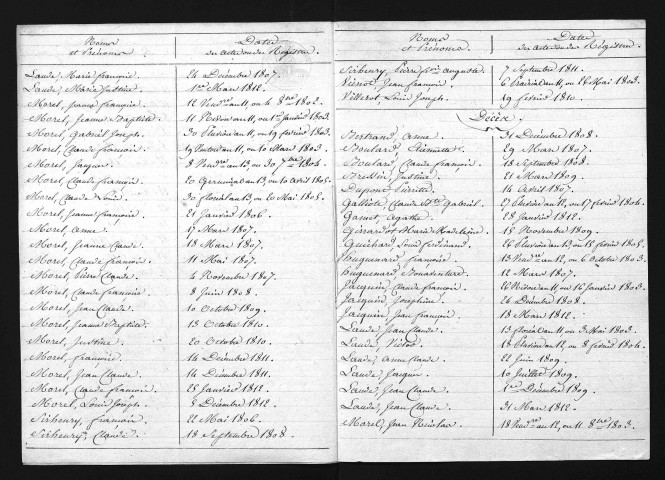 Noms et Prénoms.
Dates des actes ou des Registres.
Laude, Marie françoise. 24 Décembre 1807.
Laude, Marie Justine. 1er Mars 1812.
Morel, Jeanne françoise. 12 Vendre an 11, ou 4 8bre 1802.
Morel, Jeanne Baptiste. 11 Nivose an 11, ou 1er Janvier 1803.
Morel, Gabriel Joseph. 30 Pluviose an 11, ou 19 février 1803.
Morel, Claude françois. 19 Ventose an 11, ou 10 Mars 1803.
Morel, Jacques. 8 Vendre an 13, ou 30 7bre 1804.
Morel, Claude françois. 20 Germinal an 13, ou 10 avril 1805.
Morel, Claude Louis. 30 floréal an 13, ou 20 Mai 1805.
Morel, Jeanne françoise. 21 Janvier 1806.
Morel, Anne. 17 Mars 1807.
Morel, Jeanne Claude. 18 Mars 1807.
Morel, Claude françois. 11 Mai 1807.
Morel, Pierre Claude. 4 Novembre 1807.
Morel, Claude françoise. 8 Juin 1808.
Morel, Jean Claude. 10 Octobre 1809.
Morel, Jeanne Baptiste. 13 Octobre 1810.
Morel, Justine. 20 Octobre 1810.
Morel, françoise. 14 Décembre 1811.
Morel, Jean Claude. 14 Décembre 1811.
Morel, Claude françois. 25 Janvier 1812.
Morel, Louis Joseph. 5 Décembre 1812.
Sirheury, françois. 22 Mai 1806.
Sirheury, Claude. 18 Septembre 1808.
Noms et Prénoms.
Dates des actes ou des Régistres.
Sirheury, Pierre auguste. 7 Septembre 1811.
Jean françois. 6 Prairial an 11, ou 26 Mai 1803.
Villerot, Louis Joseph. 19 février 1810.
Décès.
Bertrand, Anne. 31 Décembre 1808.
Boulard, Etiennette. 29 Mars 1807.
Boulard, Claude françois. 18 Septembre 1808.
Bressin, Justine. 21 Mars 1809.
Dupont, Pierrette. 14 avril 1807.
Galliote, Claude Gabriel. 27 Pluviose an 12, ou 17 février 1804.
Gamet, Agathe. 28 Janvier 1812.
Gérardot Marie Madeleine. 15 Novembre 1809.
Guichard, Louis ferdinand. 26 Pluviose an 13, ou 15 février 1805.
Huguenard, françoise. 13 Vendre an 12, ou 6 Octobre 1803.
Huguenard, Bonaventure. 12 Mars 1807.
Jacquin, Claude françois. 26 Nivose an 11, ou 16 Janvier 1803.
Jacquin, Josephine. 26 Décembre 1808.
Jacquin, Jean françois. 18 Mars 1812.
Laude, Jean Claude. 13 floréal an 11, ou 3 Mai 1803.
Laude, Victor. 18 Pluviose an 12, ou 8 février 1804.
Laude, anne Claude. 22 Juin 1809.
Laude, Jacques. 10 Juillet 1809.
Laude, Jean Claude. 1er Décembre 1809.
Laude, Jean Claude. 31 Mars 1812.
Morel, Jean Nicolas. 18 Vendre an 12, ou 11 8bre 1803.